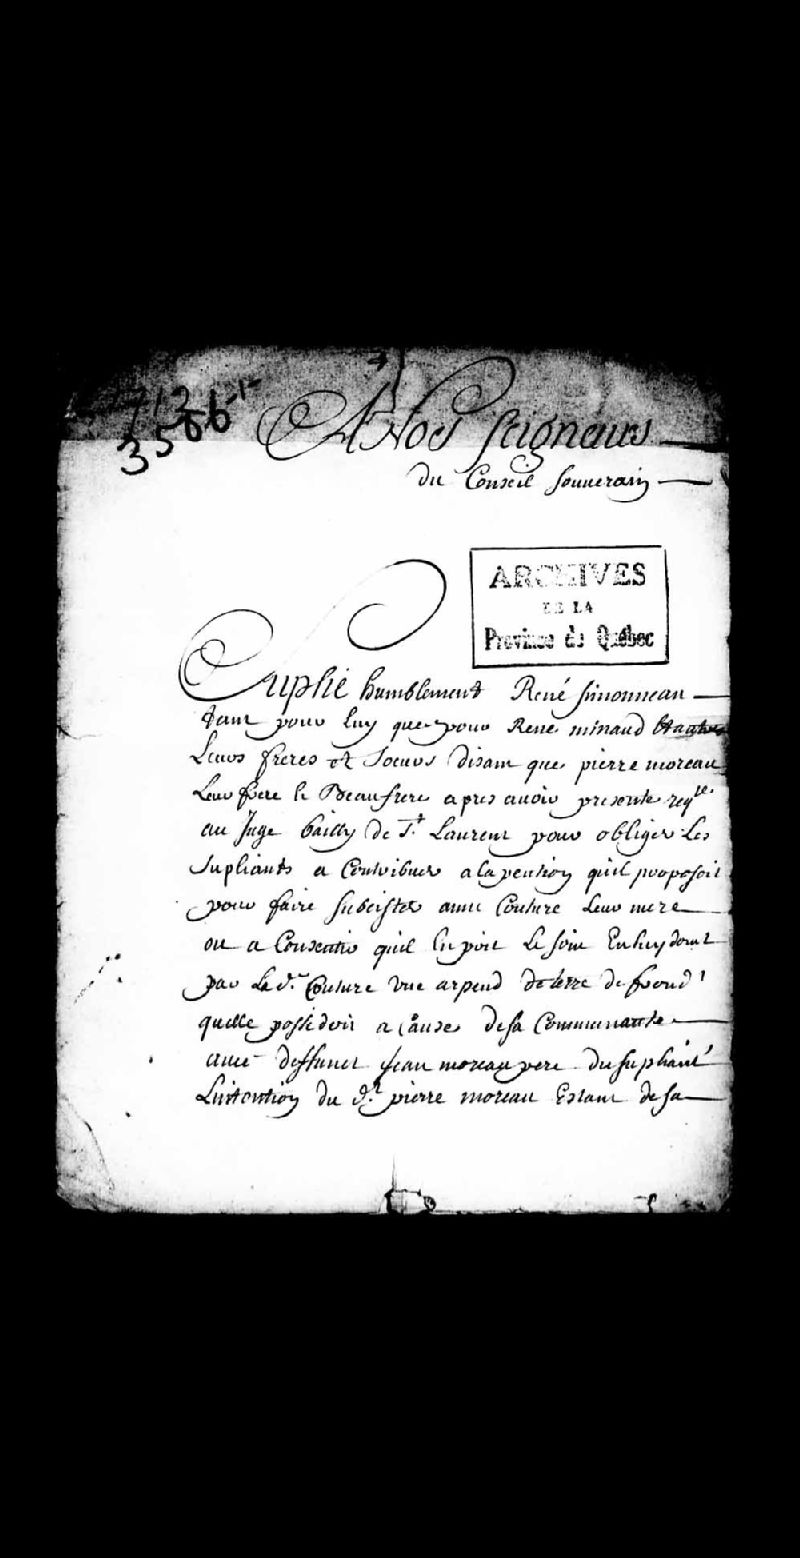 3566
A Nos seigneurs
du Conseil souuerain
ARCHIVES
DE LA
Province de Québec
Suplie humblement René simonneau
tant pour luy que pour René minaud
Leurs freres et Soeurs disant que pierre moreau
Leur frere le Beaufrere apres auoir presenté reqte
au Juge bailly de St Laurent pour obliger Les
Supliants a Contribuer a la pention quil proposoit
pour faire Subcister anne Couture Leur mere
ou a Consentir quil En prit Le soin En luy donnt
par La de Couture vne arpend de terre de frond
quelle possedoit a Cause de sa Communauté
auec deffunct jean moreau pere du supliant
Lintention du dt pierre moreau Estant de sa